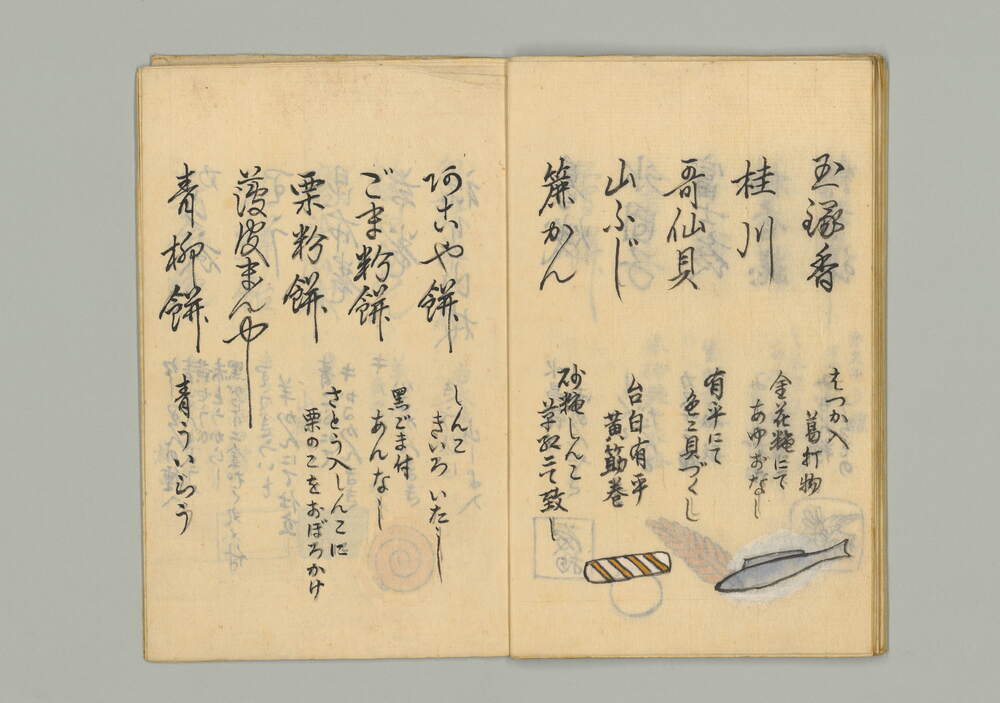 玉
香
はつか入
葛打物
桂川
金花糖にて
あゆおなし
哥仙貝
有平にて
色々貝づくし
山ふじ
台白有平
黄筋巻
簾かん
砂糖しんこと
阿古や餅
しんこ
きいろいたし
ごま粉餅
黒ごま付
あんなし
栗粉餅
さとう入しんこに
栗のこをおぼろかけ
薄皮まんぢう
青柳餅
青ういらう